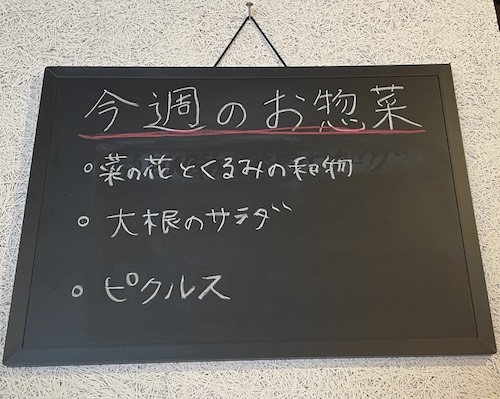 今週のお惣菜
○菜の花とくるみの和物
○大根のサラダ
○ピクルス